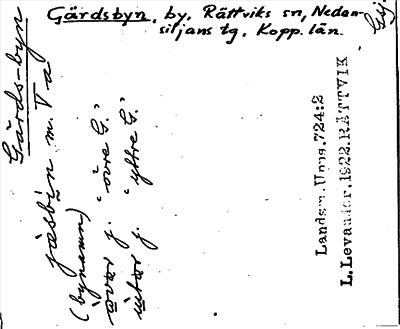 Gärdsbyn, by. Rättviks sn, Nedan-
siljans tg. Kopp. län.
Gärds-byn
jäsbin m. Va
(bynamn)
övar j. "övre G."
ütär j. "yttre G."
Landsm. Upps. 724:2
L. Levander. 1922. RÄTTVIK